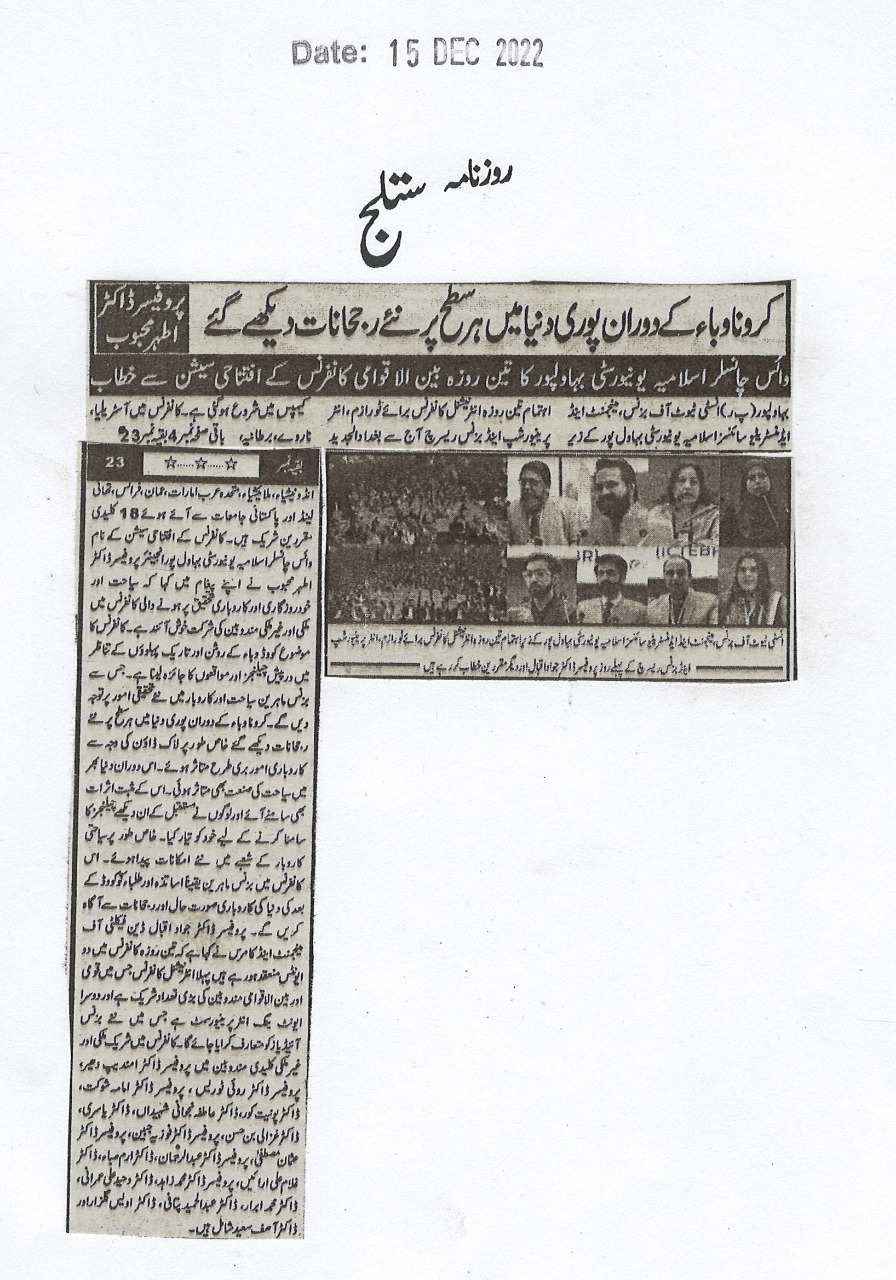 Date: 15 DEC 2022
روزنامہ ستلج
کرونا وباء کے دوران پوری دنیا میں ہر سطح پر نئے رجحانات دیکھے گئے
پروفیسر ڈاکٹر
اطہر محبوب
وائس چانسلر اسلامیہ یونیورسٹی بہاولپور کا تین روزہ بین الاقوامی کانفرنس کے افتتاحی سیشن سے خطاب
بہاولپور(پ ر) انسٹی ٹیوٹ آف بزنس، مینجمنٹ اینڈ
ایڈمنسٹریٹیو سائنسز اسلامیہ یونیورسٹی بہاول پور کے زیر
اہتمام تین روزہ انٹرنیشنل کانفرنس برائے ٹورازم، انٹر
پرینیورشپ اینڈ بزنس ریسرچ آج سے بغداد الجدید
کیمپس میں شروع ہوگئی ہے۔ کانفرنس میں آسٹریلیا،
ناروے، برطانیہ، باقی صفحہ نمبر 4 بقیہ نمبر 23
انسٹی ٹیوٹ آف بزنس، مینجمنٹ اینڈ ایڈمنسٹریٹیو سائنسز اسلامیہ یونیورسٹی بہاول پور کے زیر اہتمام تین روزہ انٹرنیشنل کانفرنس برائے ٹورازم، انٹر پرینیورشپ
اینڈ بزنس ریسرچ کے پہلے روز پروفیسر ڈاکٹر جواد اقبال اور دیگر مقررین خطاب کر رہے ہیں
بقیہ نمبر 23
انڈونیشیاء، ملائیشیاء، متحدہ عرب امارات، عمان، فرانس، تھائی
لینڈ اور پاکستانی جامعات سے آئے ہوئے 18 کلیدی
مقررین شریک ہیں۔ کانفرنس کے افتتاحی سیشن کے نام
وائس چانسلر اسلامیہ یونیورسٹی بہاول پور انجینئر پروفیسر ڈاکٹر
اطہر محبوب نے اپنے پیغام میں کہا کہ سیاحت اور
خود روزگاری اور کاروباری تحقیق پر ہونے والی کانفرنس میں
ملکی اور غیر ملکی مندوبین کی شرکت خوش آئند ہے۔ کانفرنس کا
موضوع کووڈ وباء کے روشن اور تاریک پہلوؤں کے تناظر
میں درپیش چیلنجز اور مواقعوں کا جائزہ لینا ہے۔ جس سے
بزنس ماہرین سیاحت اور کاروبار میں نئے تحقیقی امور پر توجہ
دیں گے۔ کرونا وباء کے دوران پوری دنیا میں ہر سطح پر نئے
رجحانات دیکھے گئے خاص طور پر لاک ڈاؤن کی وجہ سے
کاروباری امور بری طرح متاثر ہوئے۔ اس دوران دنیا بھر
میں سیاحت کی صنعت بھی متاثر ہوئی۔ اس کے مثبت اثرات
بھی سامنے آئے اور لوگوں نے مستقبل کے ان دیکھے چیلنجز کا
سامنا کرنے کے لیے خود کو تیار کیا۔ خاص طور پر سیاحتی
کاروبار کے شعبے میں نئے امکانات پیدا ہوئے۔ اس
کانفرنس میں بزنس ماہرین یقیناً اساتذہ اور طلباء کو کووڈ کے
بعد کی دنیا کی کاروباری صورت حال اور رجحانات سے آگاہ
کریں گے۔ پروفیسر ڈاکٹر جواد اقبال ڈین فیکلٹی آف
مینجمنٹ اینڈ کامرس نے کہا ہے کہ تین روزہ کانفرنس میں دو
ایونٹس منعقد ہو رہے ہیں پہلا انٹرنیشنل کانفرنس جس میں قومی
اور بین الاقوامی مندوبین کی بڑی تعداد شریک ہے اور دوسرا
ایونٹ ینگ انٹرپرینیورسمٹ ہے جس میں نئے بزنس
آئیڈیاز کو متعارف کرایا جائے گا۔ کانفرنس میں شریک ملکی اور
غیر ملکی کلیدی مندوبین میں پروفیسر ڈاکٹر امندیپ دھیر،
پروفیسر ڈاکٹر روئی ٹوریس، پروفیسر ڈاکٹر امامہ شوکت،
ڈاکٹر پونیت کور، ڈاکٹر عاطفہ شہیداں، ڈاکٹر یاسری،
ڈاکٹر غزالی بن حسن، پروفیسر ڈاکٹر فوزیہ جبین، پروفیسر ڈاکٹر
عثمان مصطفیٰ، پروفیسر ڈاکٹر عبدالرحمان، ڈاکٹر ارم صباء، ڈاکٹر
غلام علی ارائیں، پروفیسر ڈاکٹر محمد زاہد، ڈاکٹر وحید علی عمرانی،
ڈاکٹر محمد ابرار، ڈاکٹر عبدالحمید پتافی، ڈاکٹر اویس گلزار اور
ڈاکٹر آصف سعید شامل ہیں۔